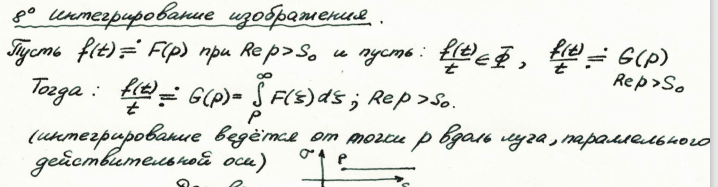 8° Интегрирование изображения.
Пусть f(t) ≓ F(p) при Re p > S₀ и пусть: f(t)/t ∈ Φ, f(t)/t ≓ G(p)
Re p > S₀
Тогда: f(t)/t ≓ G(p) = ∫_p^∞ F(ξ)dξ; Re p > S₀.
(интегрирование ведётся от точки p вдоль луча, параллельного
действительной оси)
σ p
s